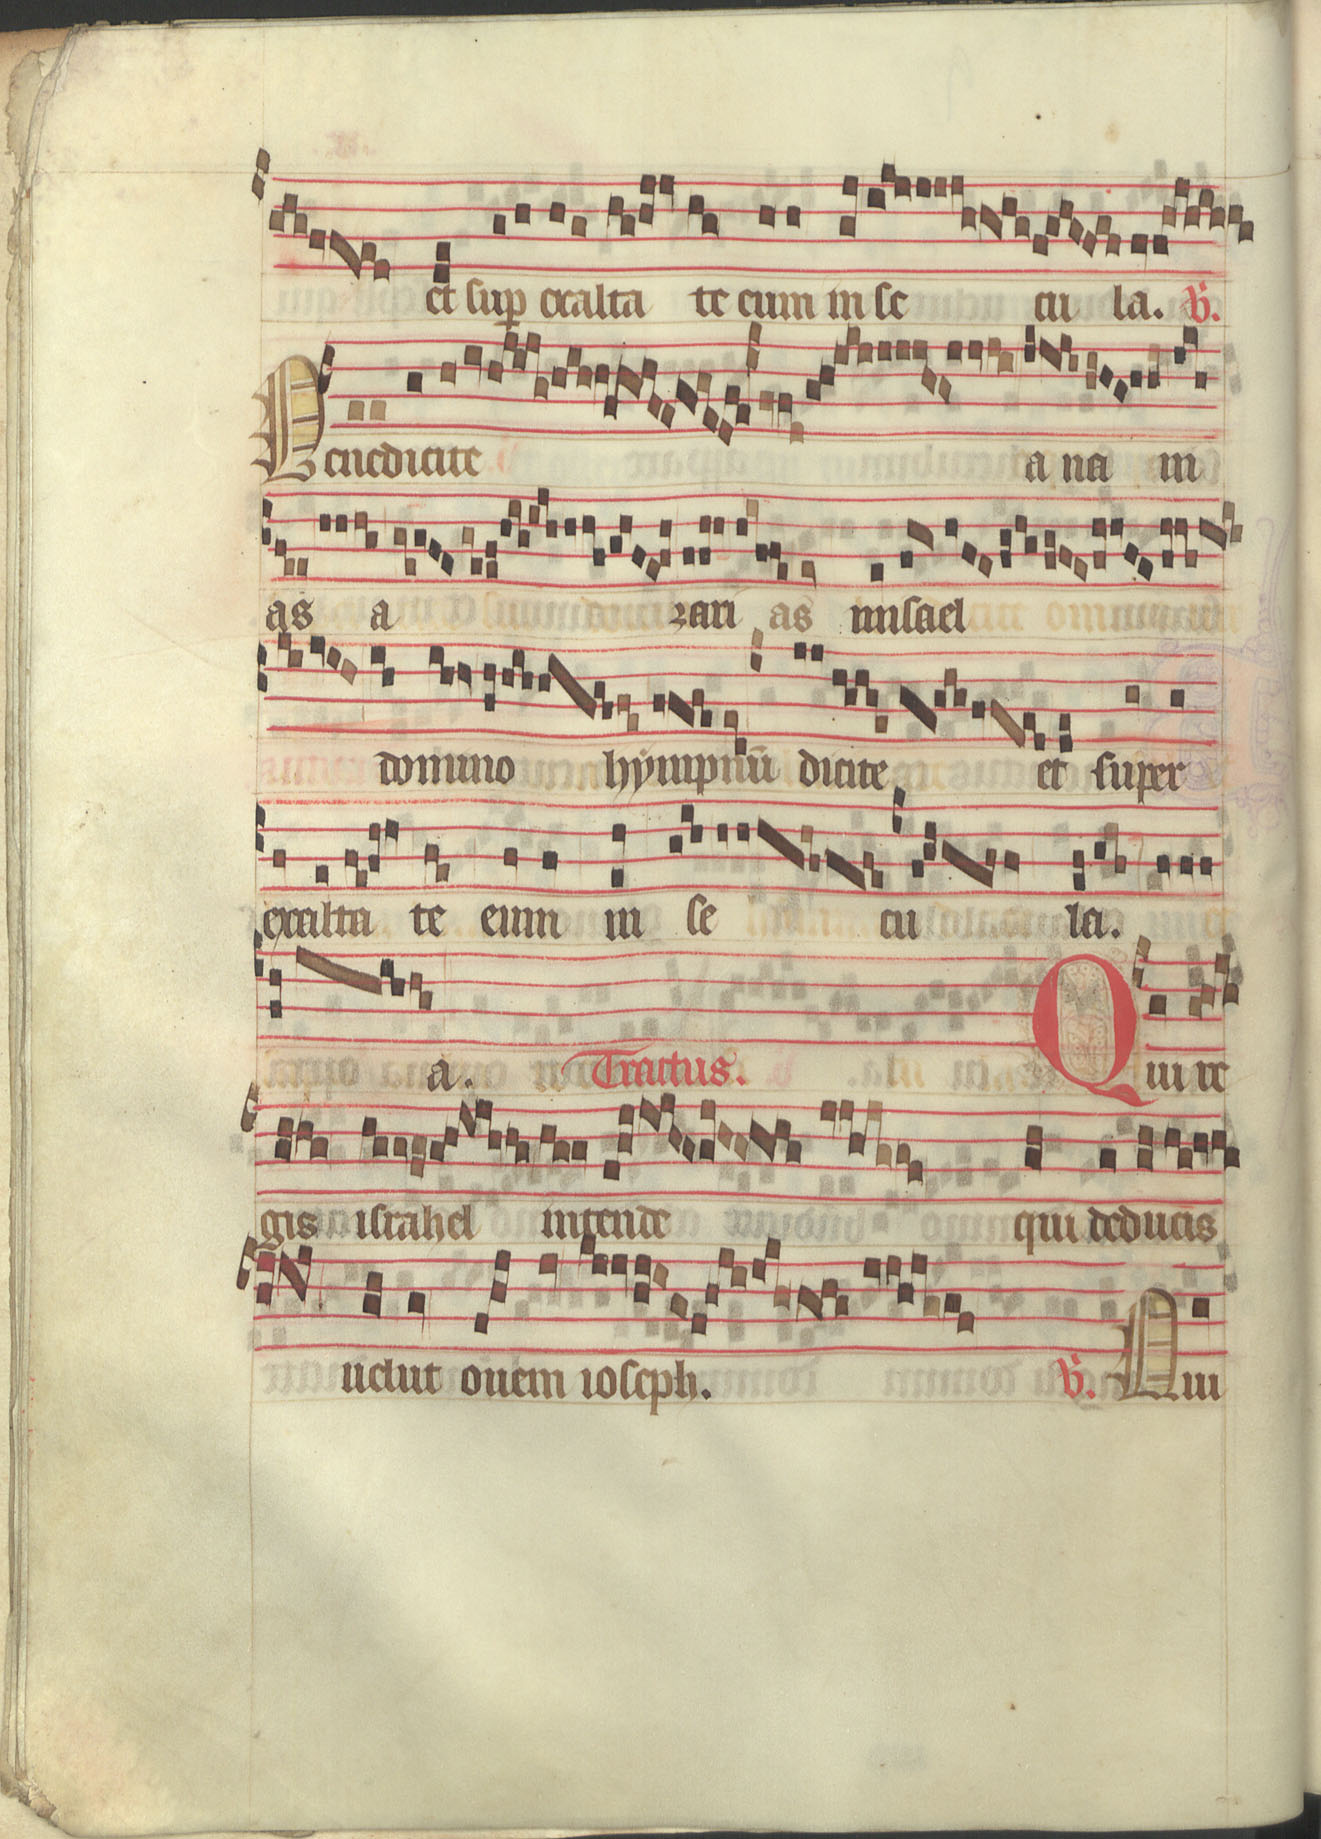 et sup exalta te eum in se cu la. v̄.
Benedicite a na ni
as a zari as misael
domino hympnū dicite et super
exalta te eum in se cu la.
a. Tractus. Qui re
gis israhel intende qui deducis
uelut ouem ioseph. v̄. Qui